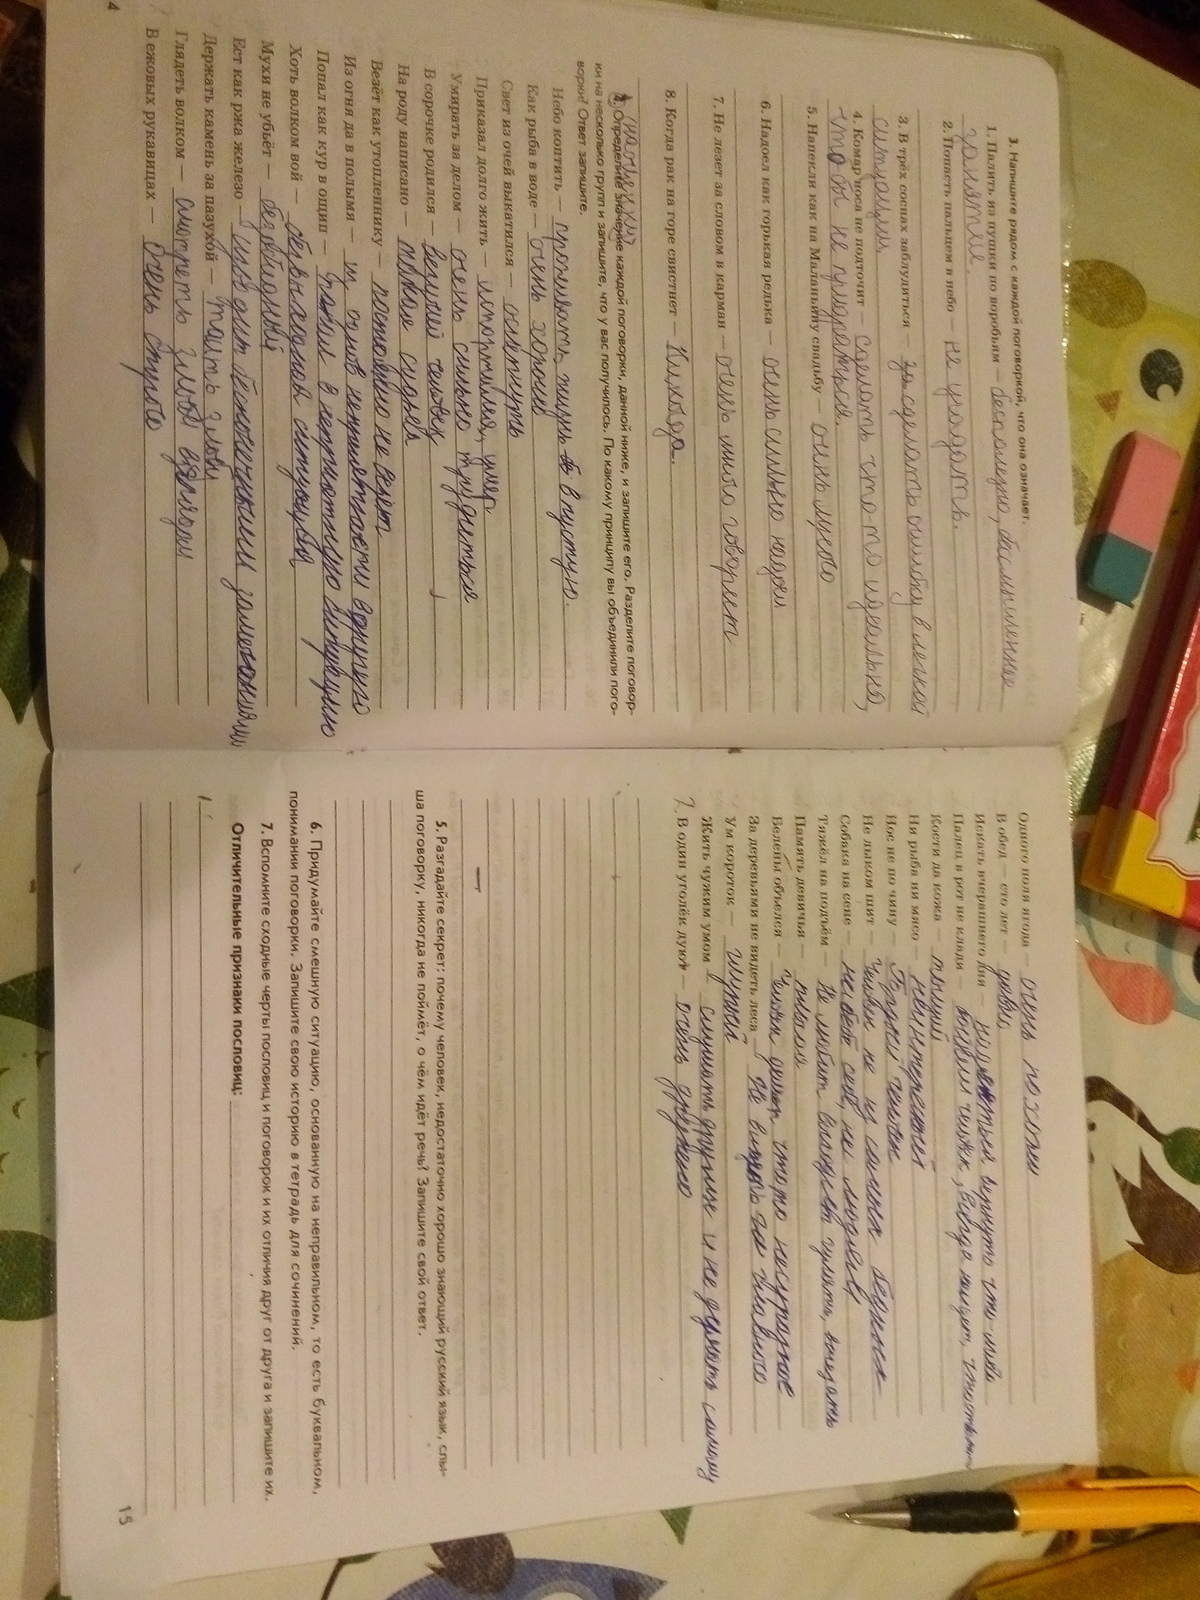 3. Напишите рядом с каждой поговоркой, что она означает.
1. Палить из пушки по воробьям — бесполезно, бесмысленное
занятие.
2. Попасть пальцем в небо — не угадать.
3. В трёх соснах заблудиться — сделать ошибку в легкой
ситуации.
4. Комар носа не подточит — сделать что то идеально,
что бы не придраться.
5. Напекли как на Маланьину свадьбу — очень много
6. Надоел как горькая редька — очень сильно надоел
7. Не лезет за словом в карман — очень много говорит
8. Когда рак на горе свистнет — Никогда.
4. Определите значение каждой поговорки, данной ниже, и запишите его. Разделите поговор-
ки на несколько групп и запишите, что у вас получилось. По какому принципу вы объединили пого-
ворки? Ответ запишите.
Небо коптить — проживать жизнь в пустую.
Как рыба в воде — очень хорошо
Свет из очей выкатился —
Приказал долго жить — умер
Умирать за делом — очень сильно трудиться
В сорочке родился — человек
На роду написано — такая судьба
Везёт как утопленнику — не везёт
Из огня да в полымя — из одной неприятности в другую
Попал как кур в ощип — попал в неприятную ситуацию
Хоть волком вой — безвыходная ситуация
Мухи не убьёт — безобидный
Ест как ржа железо — изводит бесконечными замечаниями
Держать камень за пазухой — таить злобу
Глядеть волком — смотреть злым взглядом
В ежовых рукавицах — очень строго
4
Одного поля ягода — очень похожи
В обед — сто лет — давно
Искать вчерашнего дня — вернуть что либо
Палец в рот не клади —
Кости да кожа — тощий
Ни рыба ни мясо — неинтересный
Нос не по чину — Гордый человек
Не лыком шит — человек не из самых бедных
Собака на сене — ни себе, ни людям
Тяжёл на подъём — Не любит выходить гулять, выезжать
Память девичья — плохая
Белены объелся — человек делает что то несуразное
За деревьями не видеть леса — Не видеть главного
Ум короток — глупый
Жить чужим умом — слушать других и не думать самому
В один уголёк дуют — очень дружно
5. Разгадайте секрет: почему человек, недостаточно хорошо знающий русский язык, слы-
ша поговорку, никогда не поймёт, о чём идёт речь? Запишите свой ответ.
6. Придумайте смешную ситуацию, основанную на неправильном, то есть буквальном,
понимании поговорки. Запишите свою историю в тетрадь для сочинений.
7. Вспомните сходные черты пословиц и поговорок и их отличия друг от друга и запишите их.
Отличительные признаки пословиц:
15